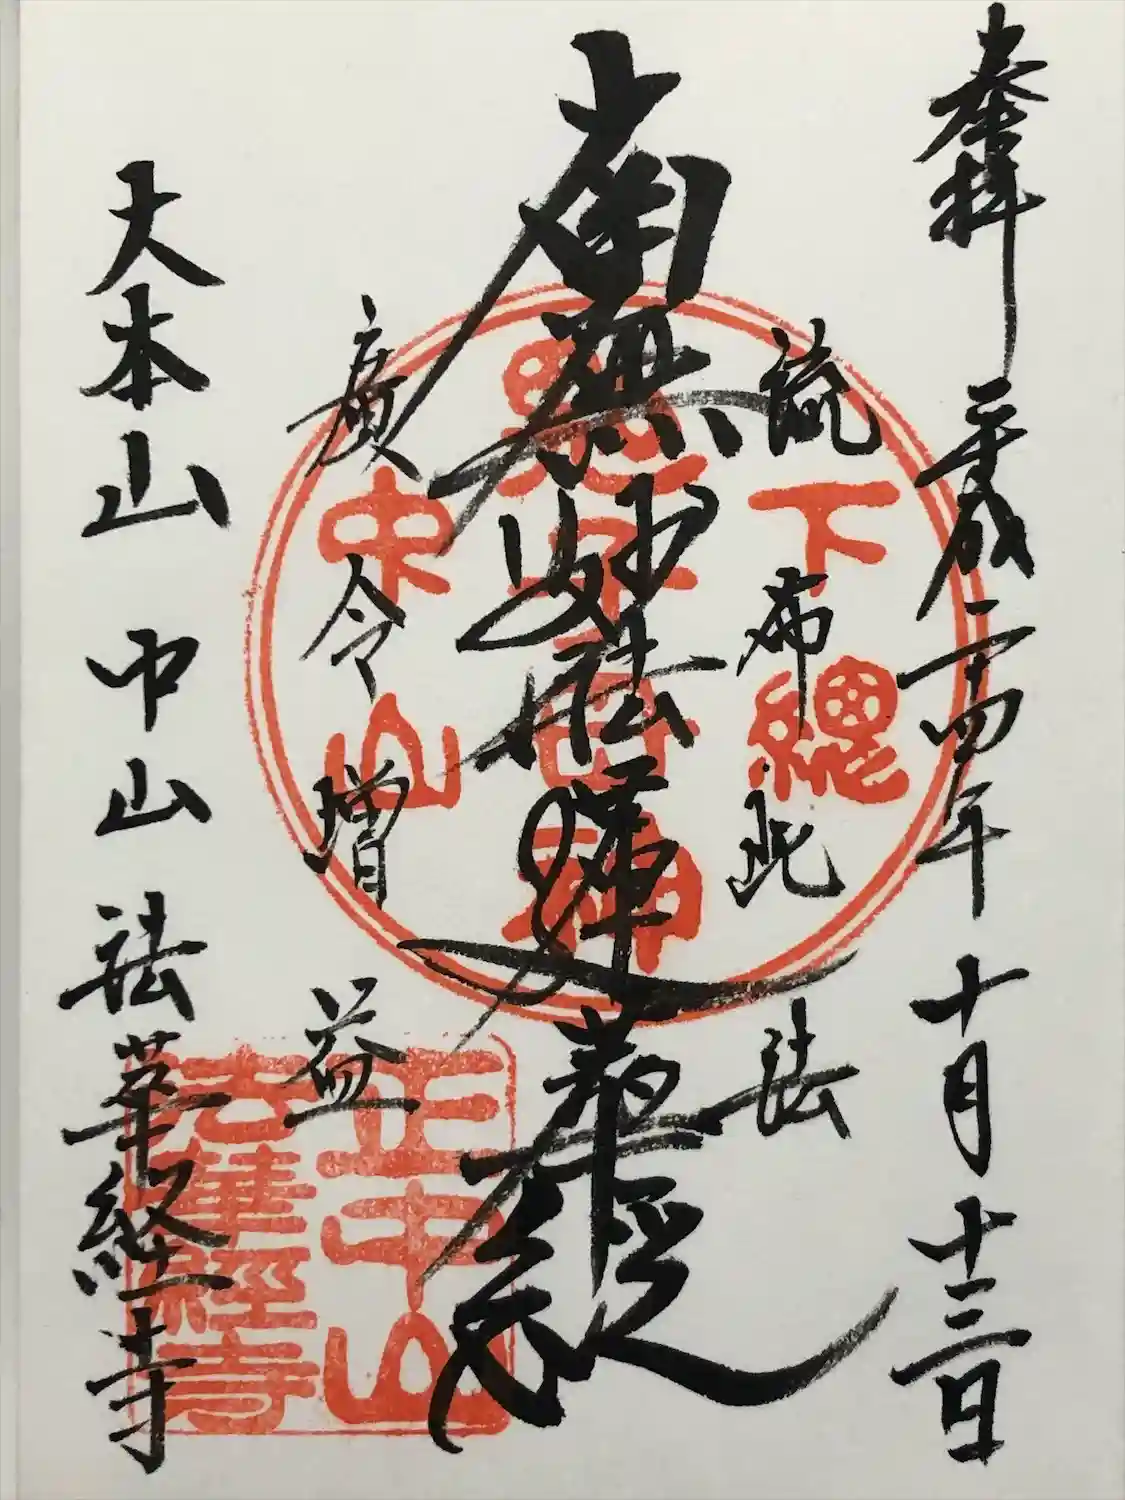 奉拝 平成二十四年 十月 十三日
流布此法
南無妙法蓮華経
廣令増益
大本山 中山 法華経寺
下總
鬼子母神
中山
正中山
法華經寺